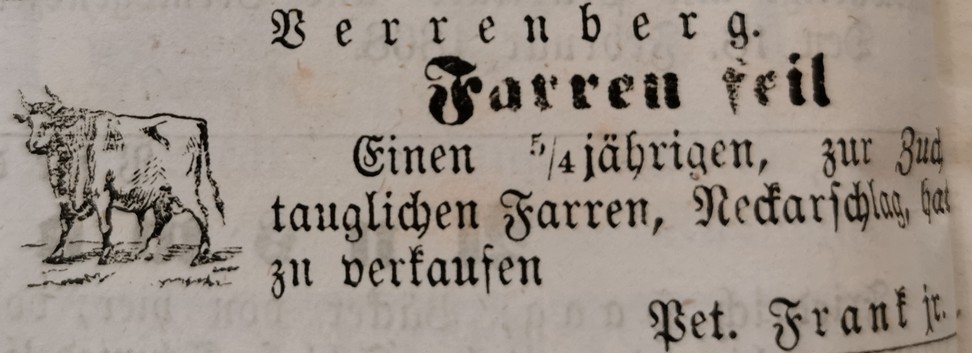 Verrenberg.
Farren feil
Einen 5/4jährigen, zur Zuch
tauglichen Farren, Neckarschlag, hat
zu verkaufen
Pet. Frank jr.